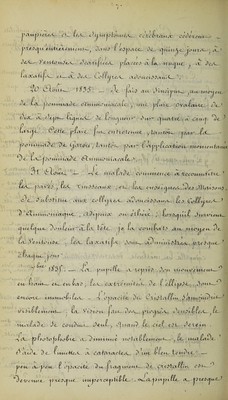 paupières et les symptômes cérébraux cédèrent
presqu'entièrement, dans l'espace de quinze jours, à
des ventouses scarifiées placées à la nuque, à des
laxatifs et à des Collyres adoucissants.
20 Août 1835. - Je fais au sinciput, au moyen
de la pommade ammoniacale, une plaie ovalaire de
deux à sept lignes de longueur sur quatre à cinq de
large. Cette plaie fut entretenue, tantôt par la
pommade de garou, tantôt par l'application momentanée
de la pommade ammoniacale.
31 Août - Le malade commence à reconnaître
les pavés, les ruisseaux ou les enseignes des Maisons
Je substitue aux collyres adoucissants les Collyres
d'Ammoniaque, lorsqu'il survient
quelque douleur à la tête, je la combats au moyen de
la Ventouse, les laxatifs sont administrés presque
chaque jour.
1835. - La pupille a repris son mouvement
en haut et en bas, les extrémités de l'ellipse, sont
encore immobiles. L'opacité du cristallin s'amoindrit
visiblement, la vision fait des progrès sensibles, le
malade se conduit seul, quand le ciel est serein
La photophobie a diminué notablement, le malade
s'aide de lunettes à cataractes, d'un bleu tendre -
peu à peu l'opacité du fragment de cristallin est
devenue presque imperceptible. La pupille a presque